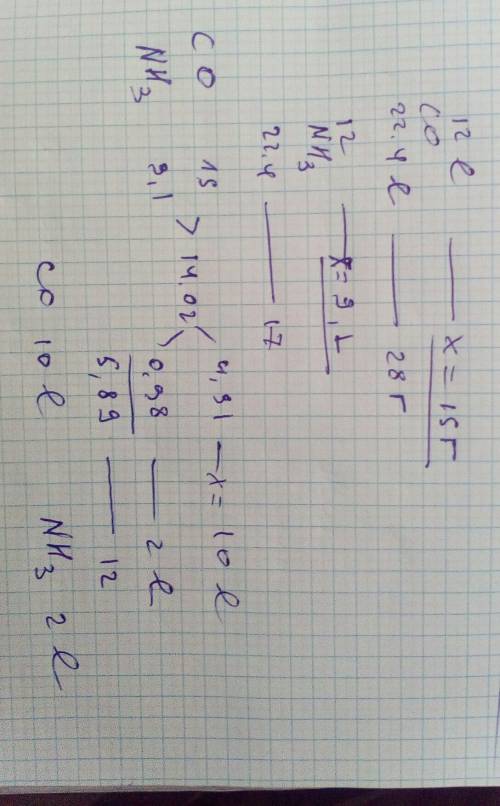 12 l — x = 15 г
CO
22.4 l — 28 г
12 — x = 9,1
NH3
22.4 — 17
CO 15 > 14,02 < 4,91 — x = 10 l
NH3 9,1 0,98 — 2 l
5,89 — 12
CO 10 l NH3 2 l